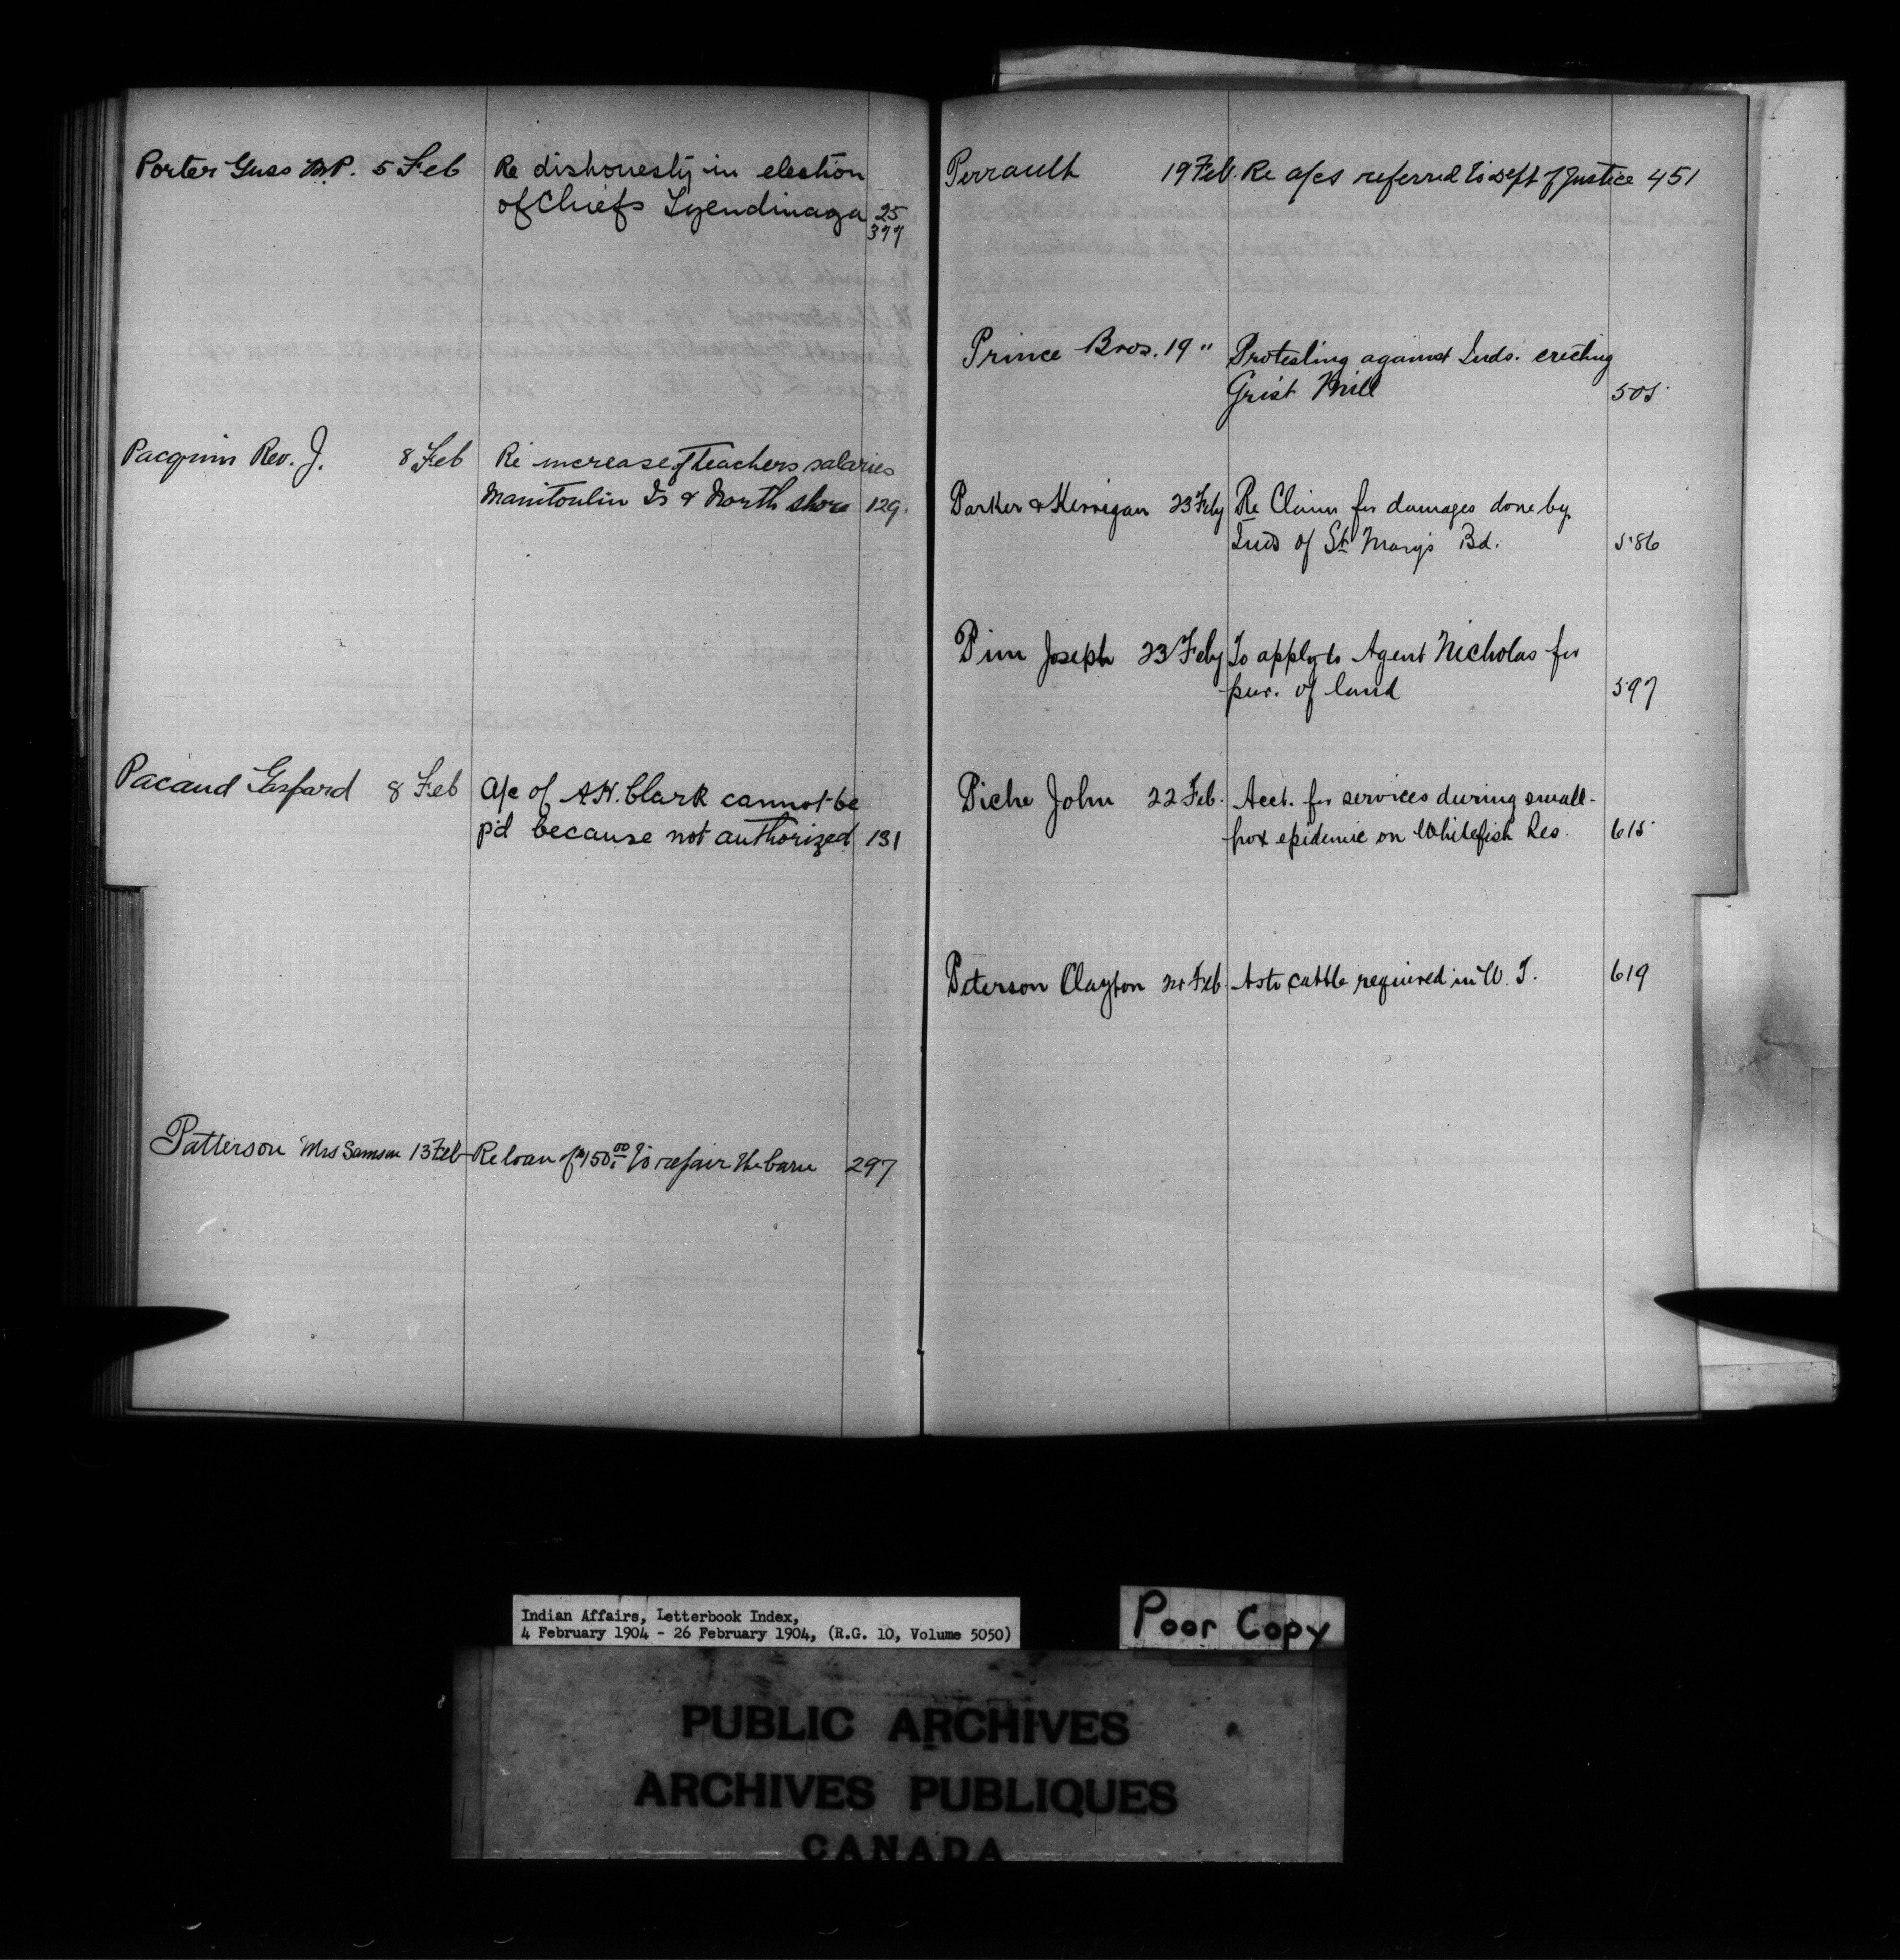 Porter Guss M.P. 5 Feb Re dishonesty in election
of Chiefs Tyendinaga 25
377
Pacquin Rev. J. 8 Feb Re increase of Teachers salaries
Manitoulin Is & North shore 129.
Pacaud Gaspard 8 Feb A/c of A.H. Clark cannot be
p'd because not authorized 131
Patterson Mrs Samson 13 Feb Re loan of $150.00 to repair the barn 297
Perrault 19 Feb. Re a/cs referred to Dept of Justice 451
Prince Bros. 19 " Protesting against Inds. erecting
Grist Mill 505
Parker & Kerrigan 23 Feby Re Claim for damages done by
Inds of St Mary's Bd. 586
Pim Joseph 23 Feby To apply to Agent Nicholas for
pur. of land 597
Piche John 22 Feb. Acct. for services during small-
pox epidemic on Whitefish Res. 615
Peterson Clayton Feb. As to cattle required in W. T. 619
Indian Affairs, Letterbook Index,
4 February 1904 - 26 February 1904, (R.G. 10, Volume 5050)
Poor Copy
PUBLIC ARCHIVES
ARCHIVES PUBLIQUES
CANADA